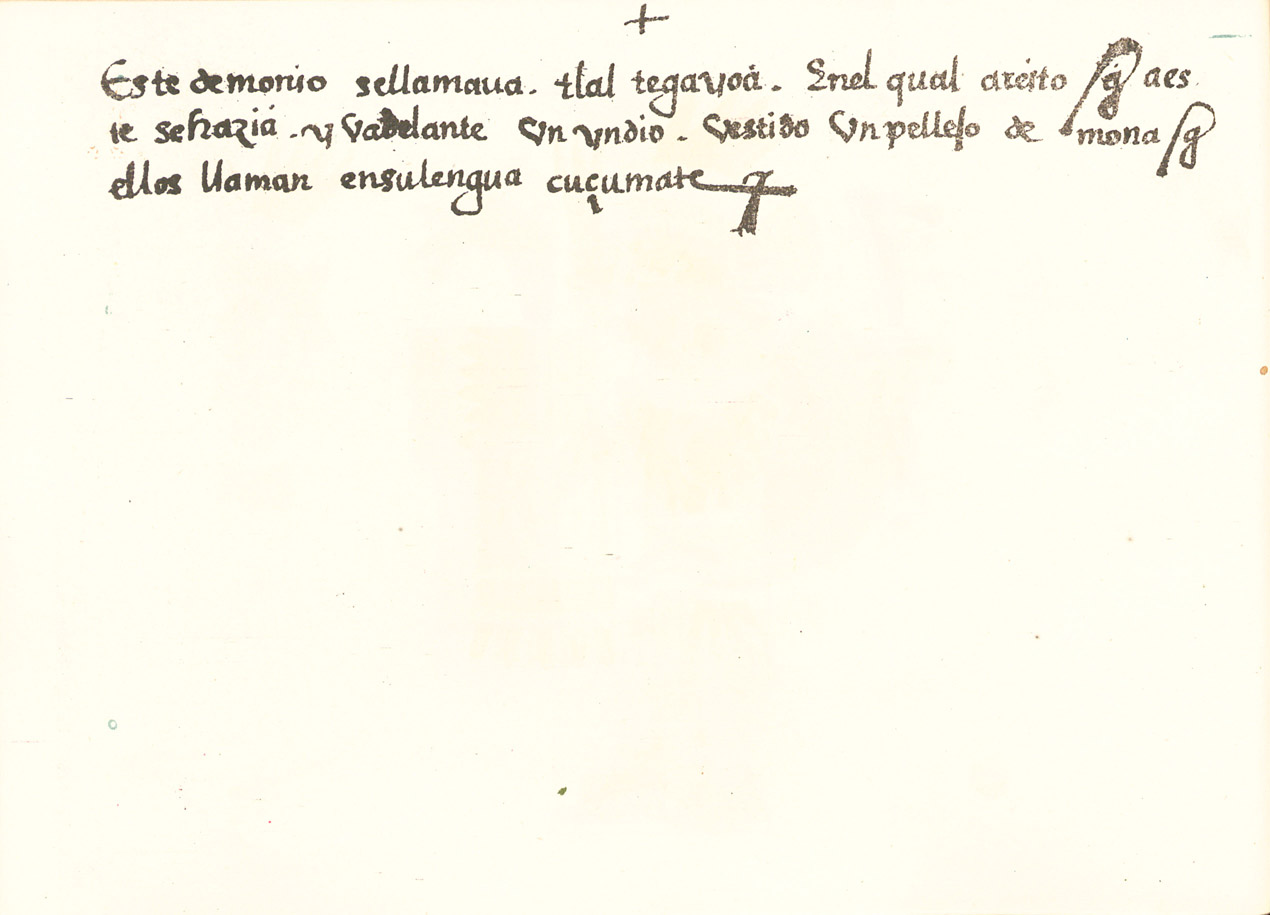 +
Este demonio sellamaua. tlal tegayoá. Enel qual areito / q̃ aes
te sehazia. y vadelante vn yndio. vestido vn pellejo de mona / q̃
ellos llaman ensulengua cuçumate